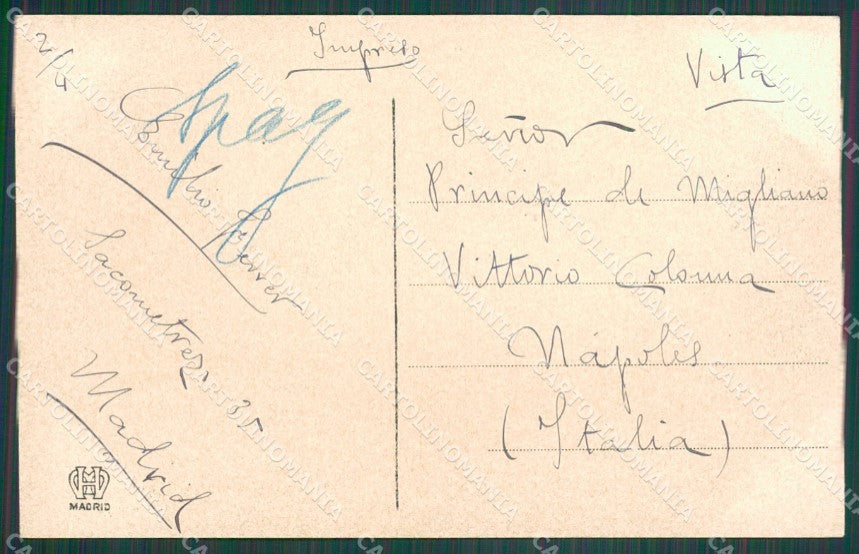 2/4
Impreso
Vista
Spag
Emilio Ferrer
Jacometrezo 35
Madrid
Señor
Principe de Migliano
Vittorio Colonna
Nápoles
(Italia)
MADRID
CARTOLINOMANIA